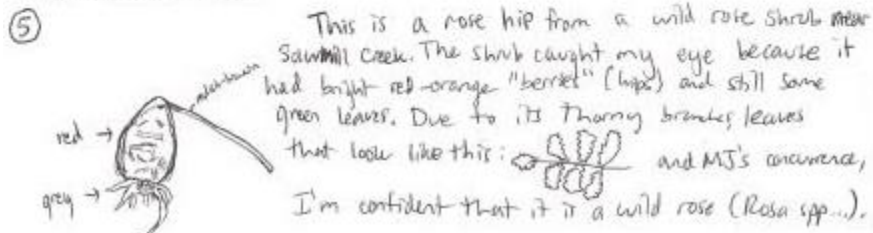 ⑤
This is a rose hip from a wild rose shrub near
Sawmill Creek. The shrub caught my eye because it
had bright red-orange "berries" (hips) and still some
green leaves. Due to its thorny branches, leaves
that look like this: and MJ's concurrence,
I'm confident that it is a wild rose (Rosa spp...).
red →
grey →